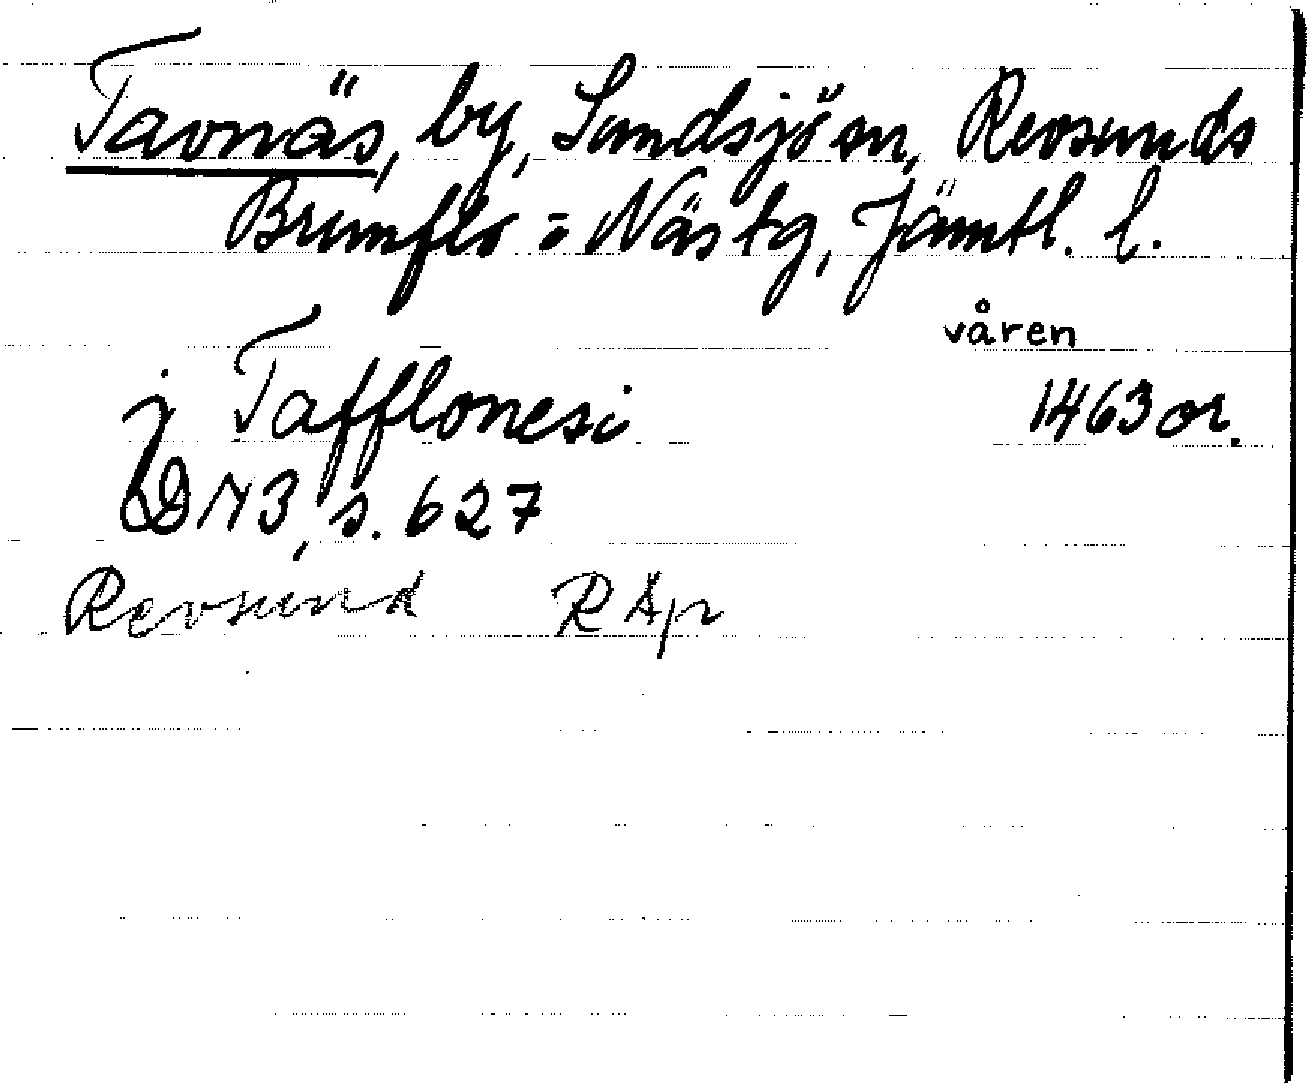 Tavnäs, by, Sundsjö sn, Revsunds
Brunflo = Näs tg, Jämtl. l.
våren
j Tafflonesi 1463 or.
DN 3, s. 627
Revsund RÄpr